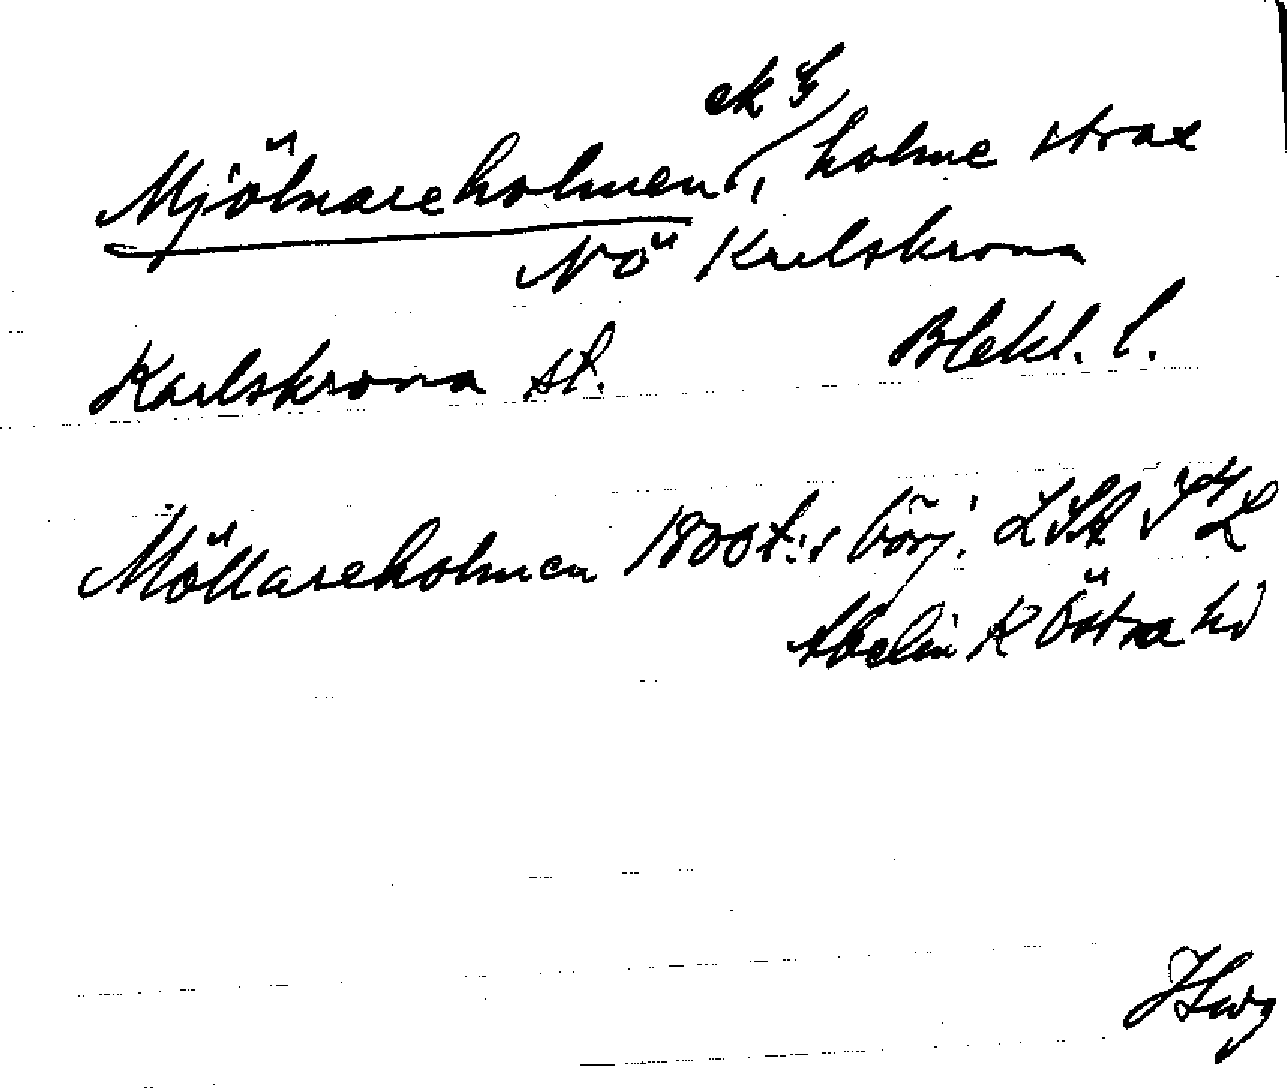 ek
Mjölnareholmen, holme strax
NÖ Karlskrona
Karlskrona st. Blekl. l.
Möllareholmen 1800t:s börj. LSA
Abelin K Östra hd